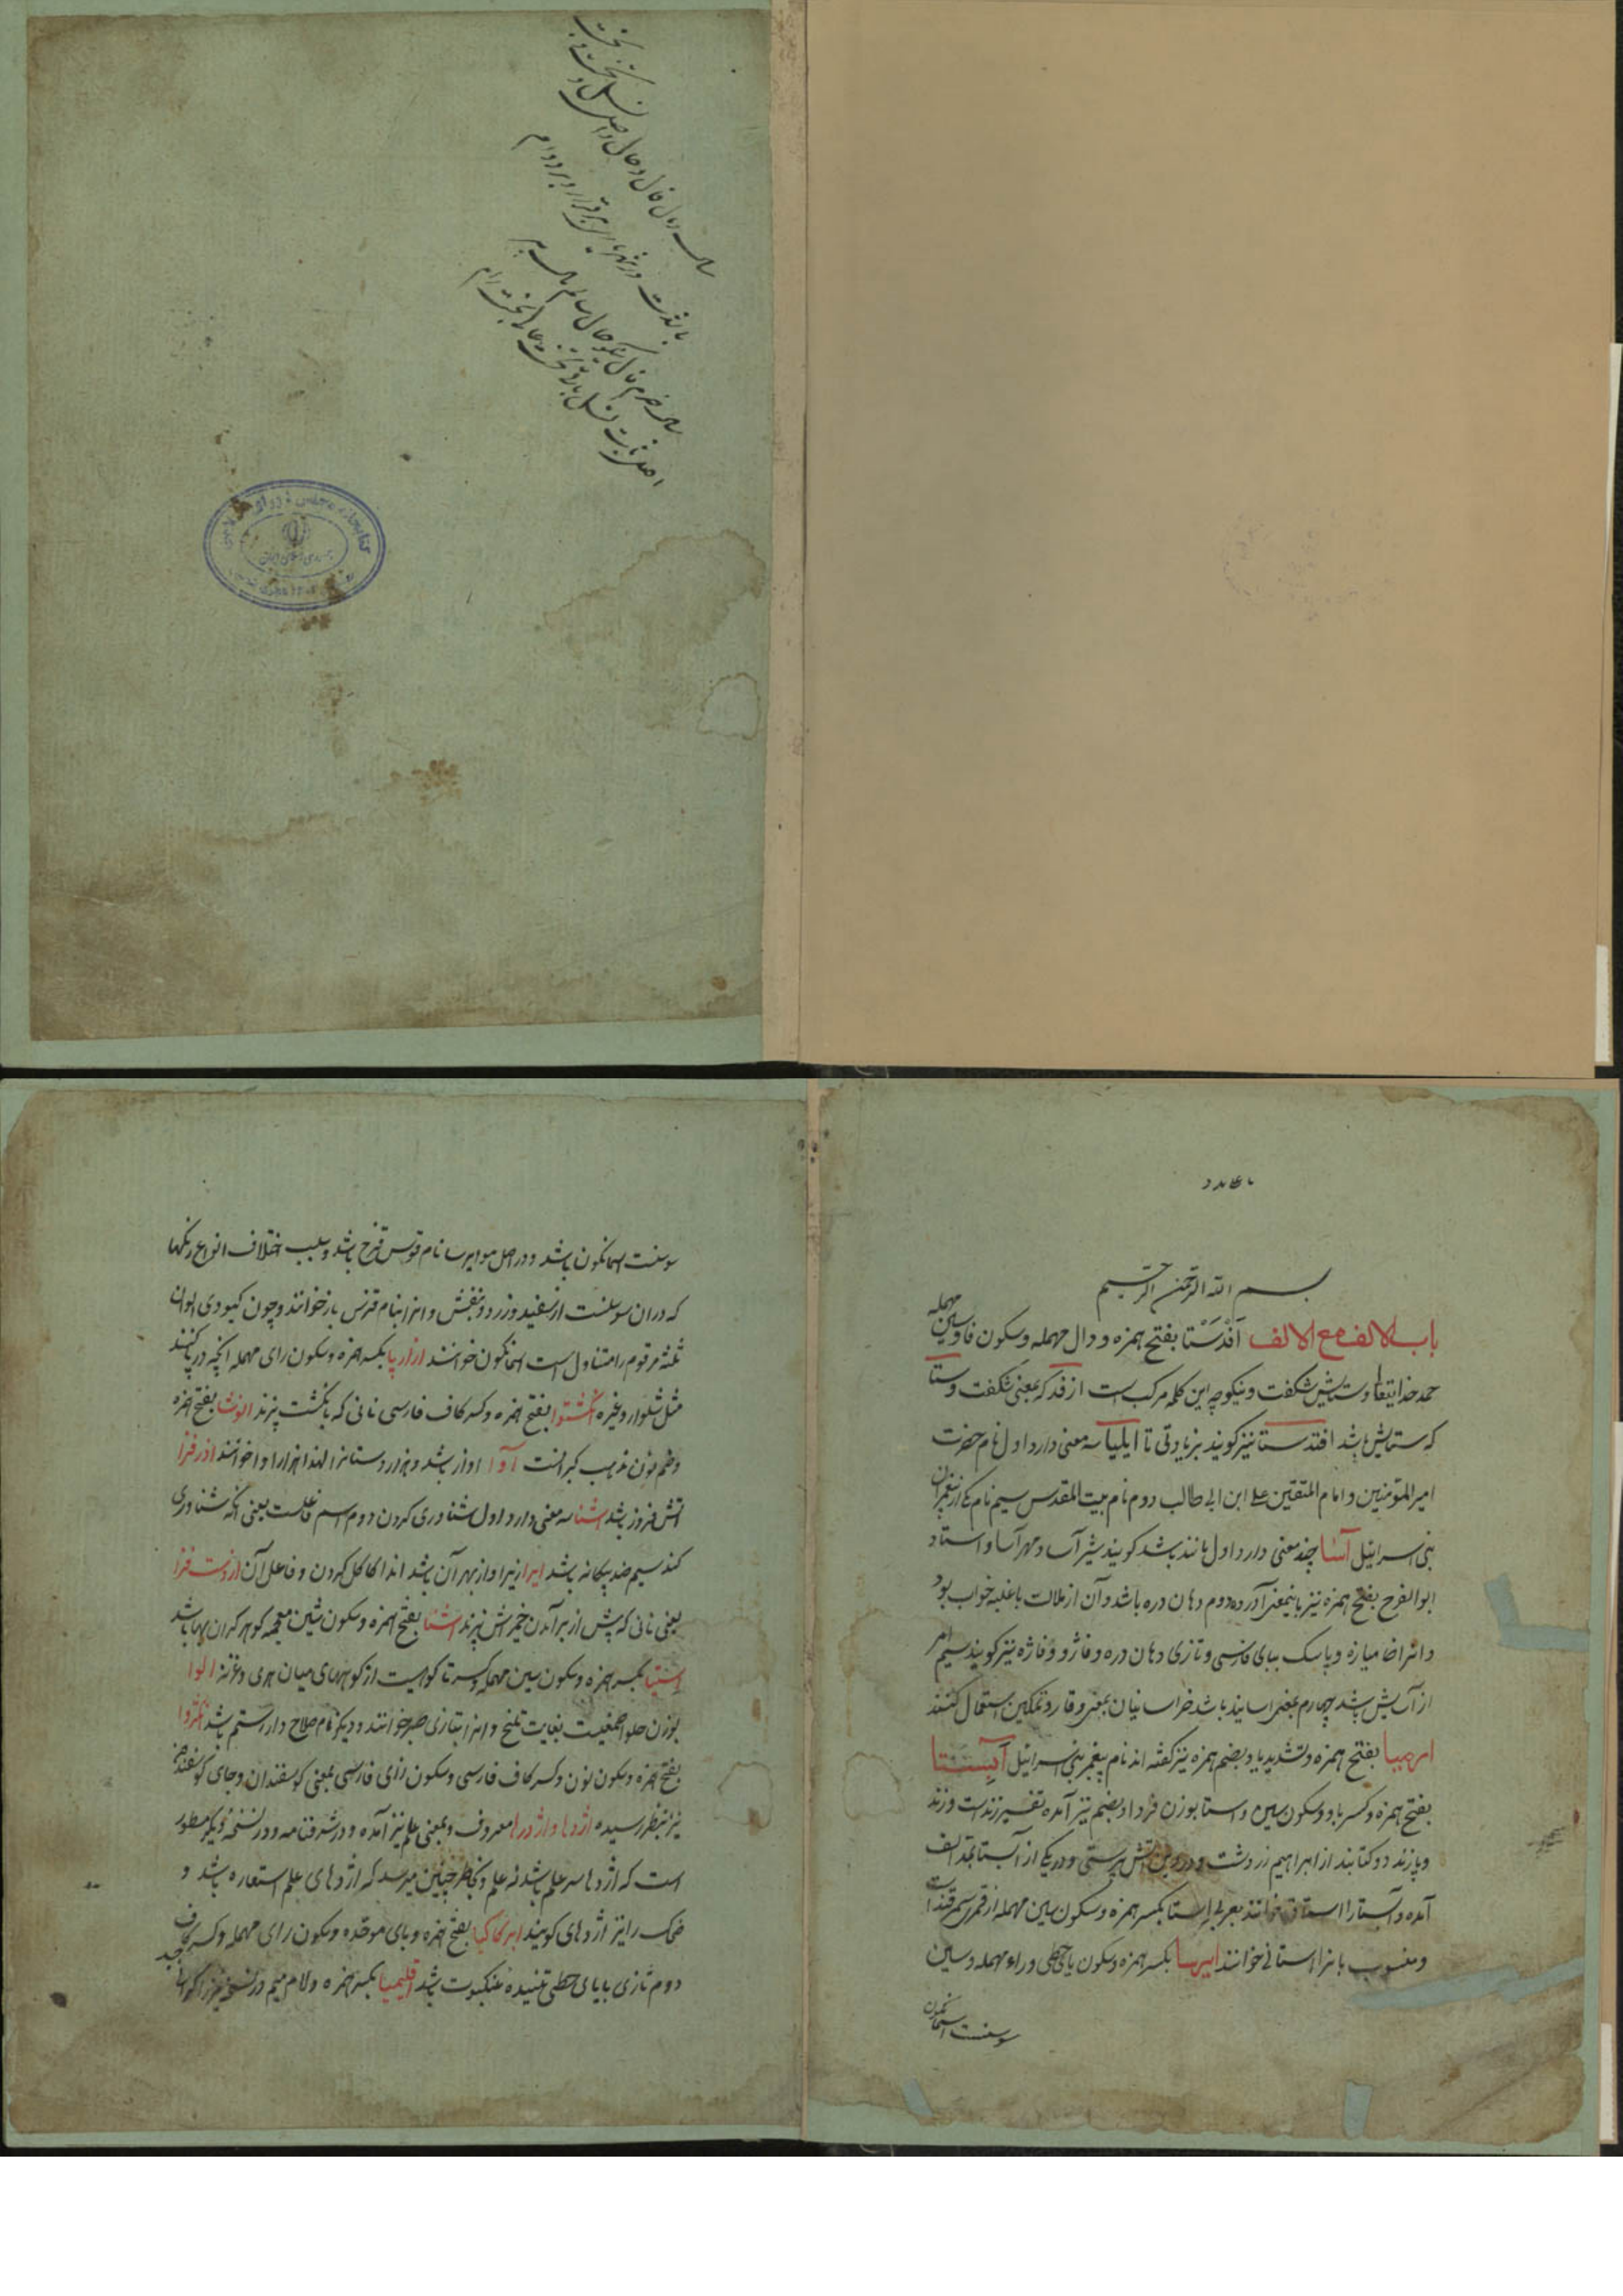 سال و فال و مال و حال و اصل و نسل و تخت و بخت
بادت در شهریاری برقرار و بر دوام
سال خرم فال نیکو حال سالم مال پر
اصل ثابت نسل باقی تخت عالی بخت رام
کتابخانه مجلس شورای اسلامی
بسم الله الرحمن الرحیم
باب الالف مع الالف اَفْدَسْتا بفتح همزه و دال مهمله و سکون فا و سین مهمله
حمد خدایتعالی و ستایش شکفت و نیکو چه این کلمه مرکب است از فد که بمعنی شکفت و ستا
که ستایش باشد افتد ستا نیز کویند بزیادتی تا ایلیا سه معنی دارد اول نام حضرت
امیر المؤمنین و امام المتقین علی ابن ابی طالب دوم نام بیت المقدس سیم نام یکی از پیغمبران
بنی اسرائیل آسا چند معنی دارد اول مانند باشد کویند شیر آسا و مهر آسا و استاد
ابو الفرج بفتح همزه نیز باینمعنی آورده دوم دهان دره باشد و آن از ملالت یا غلبه خواب بود
و انرا خامیازه و پاسک ببای فارسی و تازی و دهان دره و فاژ و فاژه نیز کویند سیم امر
از آسایش باشد چهارم بمعنی اساینده باشد خراسانیان بمعنی وقار و تمکین استعمال کنند
ارمیا بفتح همزه و تشدید یا و بضم همزه نیز کفته اند نام پیغمبر بنی اسرائیل آبستا
بفتح همزه و کسر با و سکون سین و استا بوزن فردا و بضم نیز آمده تفسیر زند است و زند
و پازند دو کتابند از ابراهیم زردشت در دین آتش پرستی و در یکی از آبستا بمد الف
آمده و آستا را استاق خوانند بعربی اِستا بکسر همزه و سکون سین مهمله از قرای سمرقند است
و منسوب بانرا استانی خوانند ایرسا بکسر همزه و سکون یای حطی و راء مهمله و سین
سوسنت اسمانکون
سوسنت اسمانکون باشد و در اصل هو ایرسا نام قوس قزح باشد و بسبب اختلاف انواع رنکها
که در ان سوسنست از سفید و زرد و بنفش و انرا بنام قزس باز خوانند و چون کبودی الوان
ثلثه مرقوم را متناول است اسمانکون خوانند ازارپا بکسر همزه و سکون رای مهمله انچه در پا کنند
مثل شلوار و غیره انکشتوا بفتح همزه و کسر کاف فارسی نانی که بانکشت پزند انوشا بفتح همزه
و ضم نون مذهب کبرانست آوا اواز باشد و هزار دستانرا لهذا هزار اوا خوانند اذرفزا
اتش فروز باشد اشنا سه معنی دارد اول شناوری کردن دوم اسم فاعلست یعنی انکه شناوری
کند سیم ضد بیکانه باشد ایرا زیرا و از بهر آن باشد اندا کاکل کردن و فاعل آن
یعنی نانی که پیش از برآمدن خمیرش پزند اشنا بفتح همزه و سکون شین معجمه کوهر کران بها باشد
اِستیا بکسر همزه و سکون سین مهمله و کسر تا کوهیست از کوههای میان هری و غزنه الوا
بوزن حلوا صمغیست بغایت تلخ و انرا بتازی صبر خوانند و دیکر نام سلاح دار رستم باشد انکژوا
بفتح همزه و سکون نون و کسر کاف فارسی و سکون زای فارسی بمعنی کوسفندان و جای کوسفند هم
نیز بنظر رسیده اژدها و اژدرا معروف و بمعنی علم نیز آمده و در شرفنامه و در نسخه دیکر مسطور
است که اژدها سر علم باشد نه علم و بخاطر چنین میرسد که اژدهای علم استعاره باشد و
ضحاک را نیز اژدهای کویند ابرکاکیا بفتح همزه و بای موحده و سکون رای مهمله و کسر کاف
دوم تازی با یای حطی تنیده عنکبوت باشد اقلیمیا بکسر همزه و لام و میم در نسخه میرزا